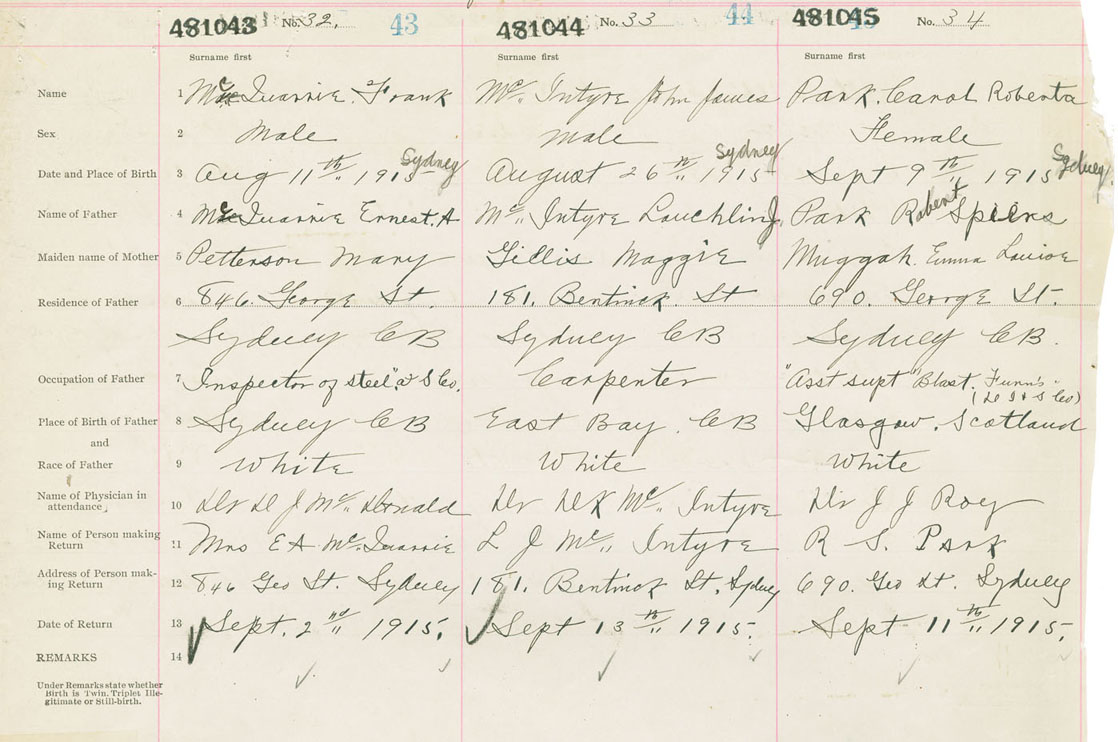 481043 No. 32. 43 481044 No. 33 44 481045 No. 34
Surname first Surname first Surname first
Name 1 McQuarrie. Frank Mc. Intyre John James Park. Carol Roberta
Sex 2 Male Male Female
Date and Place of Birth 3 Aug 11th 1915 Sydney August 26th 1915 Sydney Sept 9th 1915 Sydney
Name of Father 4 McQuarrie Ernest. A Mc Intyre Lauchlin J. Park Robert Speirs
Maiden name of Mother 5 Petterson Mary Gillis Maggie Muggah. Emma Louise
Residence of Father 6 846. George St. 181. Bentinck. St 690. George St.
Sydney CB Sydney CB Sydney CB.
Occupation of Father 7 Inspector of steel" Carpenter "Asst supt "Blast. Furn's"
Place of Birth of Father 8 Sydney CB East Bay. CB Glasgow. Scotland
and
Race of Father 9 White White White
Name of Physician in
attendance 10 Dr D J Mc Donald Dr D K Mc Intyre Dr J J Roy
Name of Person making
Return 11 Mrs E A McQuarrie L J Mc Intyre R S. Park
Address of Person mak-
ing Return 12 846 Geo St. Sydney 181. Bentinck St. Sydney 690. Geo St. Sydney
Date of Return 13 Sept. 2nd 1915. Sept 13th 1915. Sept 11th 1915.
REMARKS 14
Under Remarks state whether
Birth is Twin. Triplet Ille-
gitimate or Still-birth.